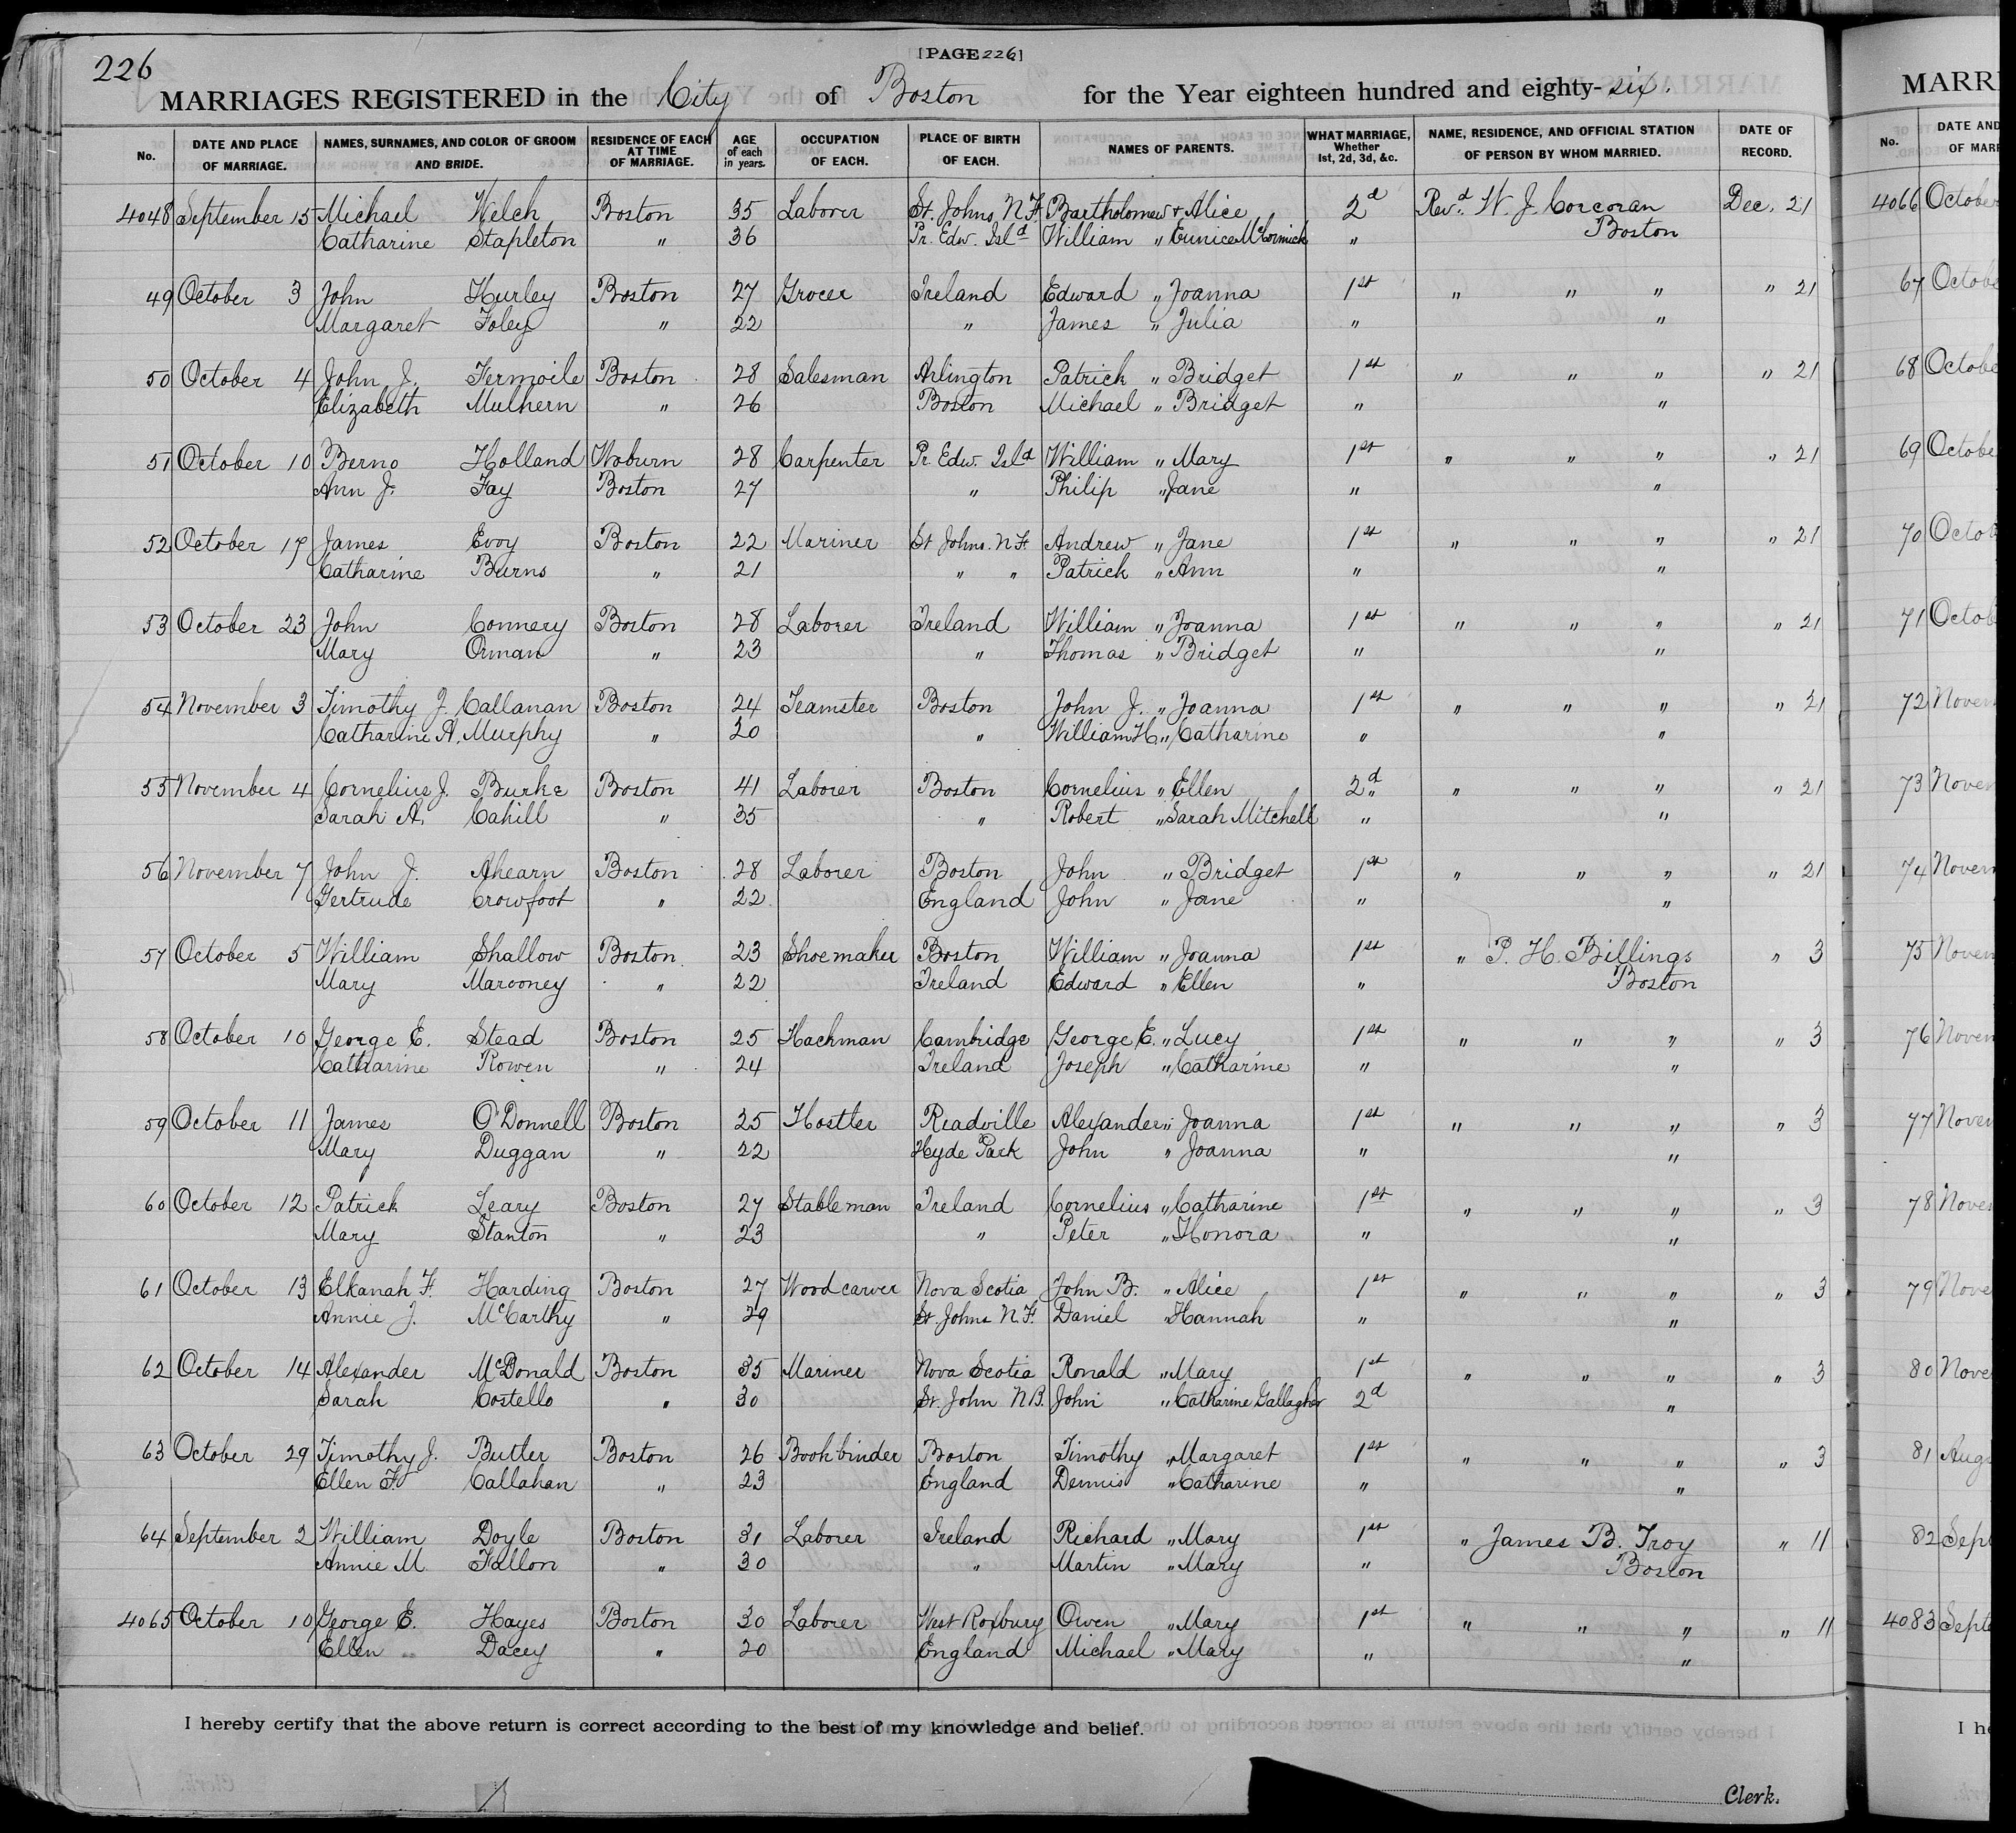 226
[PAGE 226]
MARRIAGES REGISTERED in the City of Boston for the Year eighteen hundred and eighty-six.
No. DATE AND PLACE OF MARRIAGE. NAMES, SURNAMES, AND COLOR OF GROOM AND BRIDE. RESIDENCE OF EACH AT TIME OF MARRIAGE. AGE of each in years. OCCUPATION OF EACH. PLACE OF BIRTH OF EACH. NAMES OF PARENTS. WHAT MARRIAGE, Whether 1st, 2d, 3d, &c. NAME, RESIDENCE, AND OFFICIAL STATION OF PERSON BY WHOM MARRIED. DATE OF RECORD.
4048 September 15 Michael Welch Boston 35 Laborer St. Johns N.F. Bartholomew & Alice 2d Revd. W. J. Corcoran Dec. 21
Catharine Stapleton " 36 Pr. Edw. Isld William " Eunice McCormick " Boston
49 October 3 John Hurley Boston 27 Grocer Ireland Edward " Joanna 1st " " " " 21
Margaret Foley " 22 " James " Julia " "
50 October 4 John J. Fermoile Boston 28 Salesman Arlington Patrick " Bridget 1st " " " " 21
Elizabeth Mulhern " 26 Boston Michael " Bridget " "
51 October 10 Berno Holland Woburn 28 Carpenter Pr. Edw. Isld William " Mary 1st " " " " 21
Ann J. Fay Boston 27 " Philip " Jane " "
52 October 17 James Evoy Boston 22 Mariner St Johns. N.F. Andrew " Jane 1st " " " " 21
Catharine Burns " 21 " " Patrick " Ann " "
53 October 23 John Connery Boston 28 Laborer Ireland William " Joanna 1st " " " " 21
Mary Orman " 23 " Thomas " Bridget " "
54 November 3 Timothy J. Callanan Boston 24 Teamster Boston John J. " Joanna 1st " " " " 21
Catharine A. Murphy " 20 " William H. " Catharine " "
55 November 4 Cornelius J. Burke Boston 41 Laborer Boston Cornelius " Ellen 2d " " " " 21
Sarah A. Cahill " 35 " Robert " Sarah Mitchell " "
56 November 7 John J. Ahearn Boston 28 Laborer Boston John " Bridget 1st " " " " 21
Gertrude Crowfoot " 22 England John " Jane " "
57 October 5 William Shallow Boston 23 Shoemaker Boston William " Joanna 1st " P. H. Billings " 3
Mary Marooney " 22 Ireland Edward " Ellen " Boston
58 October 10 George E. Stead Boston 25 Hackman Cambridge George E. " Lucy 1st " " " " 3
Catharine Rowen " 24 Ireland Joseph " Catharine " "
59 October 11 James O'Donnell Boston 25 Hostler Readville Alexander " Joanna 1st " " " " 3
Mary Duggan " 22 Hyde Park John " Joanna " "
60 October 12 Patrick Leary Boston 27 Stableman Ireland Cornelius " Catharine 1st " " " " 3
Mary Stanton " 23 " Peter " Honora " "
61 October 13 Elkanah F. Harding Boston 27 Wood carver Nova Scotia John B. " Alice 1st " " " " 3
Annie J. McCarthy " 29 St. Johns N.F. Daniel " Hannah " "
62 October 14 Alexander McDonald Boston 35 Mariner Nova Scotia Ronald " Mary 1st " " " " 3
Sarah Costello " 30 St. John N.B. John " Catharine Gallagher 2d "
63 October 29 Timothy J. Butler Boston 26 Bookbinder Boston Timothy " Margaret 1st " " " " 3
Ellen F. Callahan " 23 England Dennis " Catharine " "
64 September 2 William Doyle Boston 31 Laborer Ireland Richard " Mary 1st " James B. Troy " 11
Annie M. Fallon " 30 " Martin " Mary " Boston
4065 October 10 George E. Hayes Boston 30 Laborer West Roxbury Owen " Mary 1st " " " " 11
Ellen Dacey " 20 England Michael " Mary " "
I hereby certify that the above return is correct according to the best of my knowledge and belief.
Clerk.
MARR
No. DATE AND
OF MAR
4066 October
67 Octobe
68 Octobe
69 Octobe
70 Octob
71 Octob
72 Novem
73 Novem
74 Novem
75 Novem
76 Novem
77 Novem
78 Novem
79 Nove
80 Nove
81 Aug
82 Sept
4083 Sept
I he